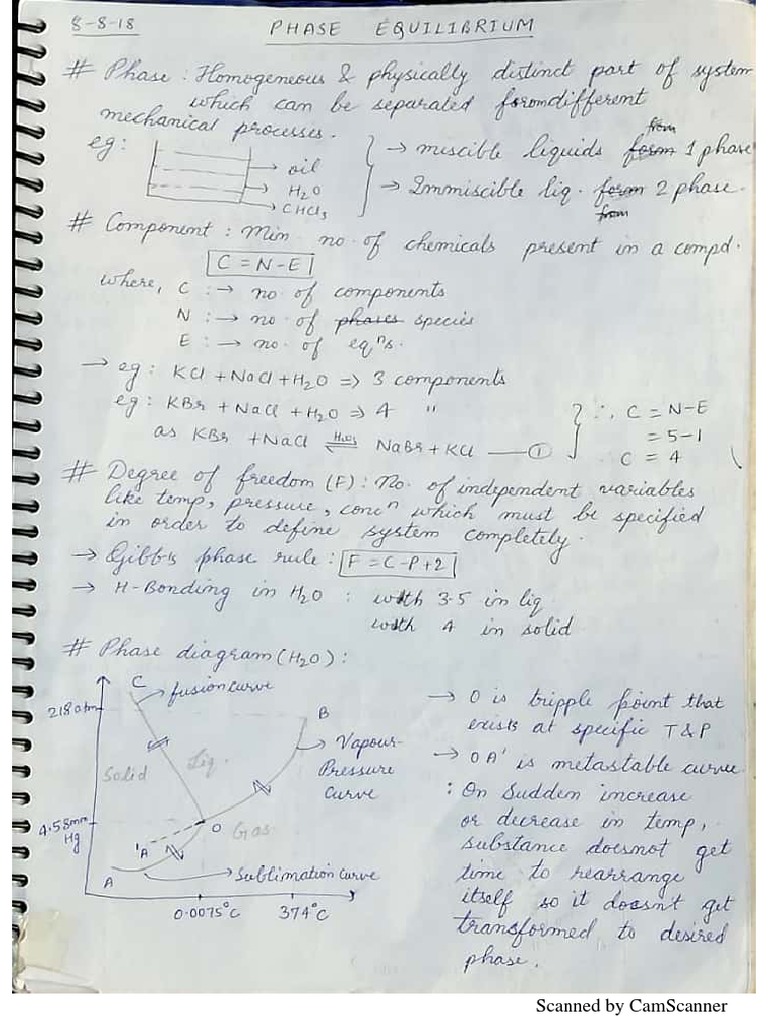 8-8-18
PHASE EQUILIBRIUM
# Phase : Homogeneous & physically distinct part of system
which can be separated from different
mechanical processes.
eg:
→ oil
→ H₂O
→ CHCl₃
→ miscible liquids form from 1 phase
→ Immiscible liq. form from 2 phase.
# Component : Min no. of chemicals present in a compd.
C = N-E
where, C :→ no. of components
N :→ no. of phases species
E :→ no. of eqⁿs.
→ eg: KCl + NaCl + H₂O => 3 components
eg: KBr + NaCl + H₂O => 4 "
as KBr + NaCl ⇌ NaBr + KCl —— ①
∴ C = N-E
= 5-1
C = 4
# Degree of freedom (F) : No. of independent variables
like temp, pressure, concⁿ which must be specified
in order to define system completely.
→ Gibb's phase rule : F = C-P+2
→ H-Bonding in H₂O : with 3.5 in liq
with 4 in solid
# Phase diagram (H₂O) :
C
→ fusion curve
218 atm
B
→ Vapour
Pressure
curve
Solid
Liq.
4.58mm
Hg
O
Gas
'A
A
→ Sublimation curve
0.0075°C
374°C
→ O is tripple point that
exists at specific T & P
→ OA' is metastable curve
: On Sudden increase
or decrease in temp,
substance doesnot get
time to rearrange
itself so it doesnt get
transformed to desired
phase.
Scanned by CamScanner